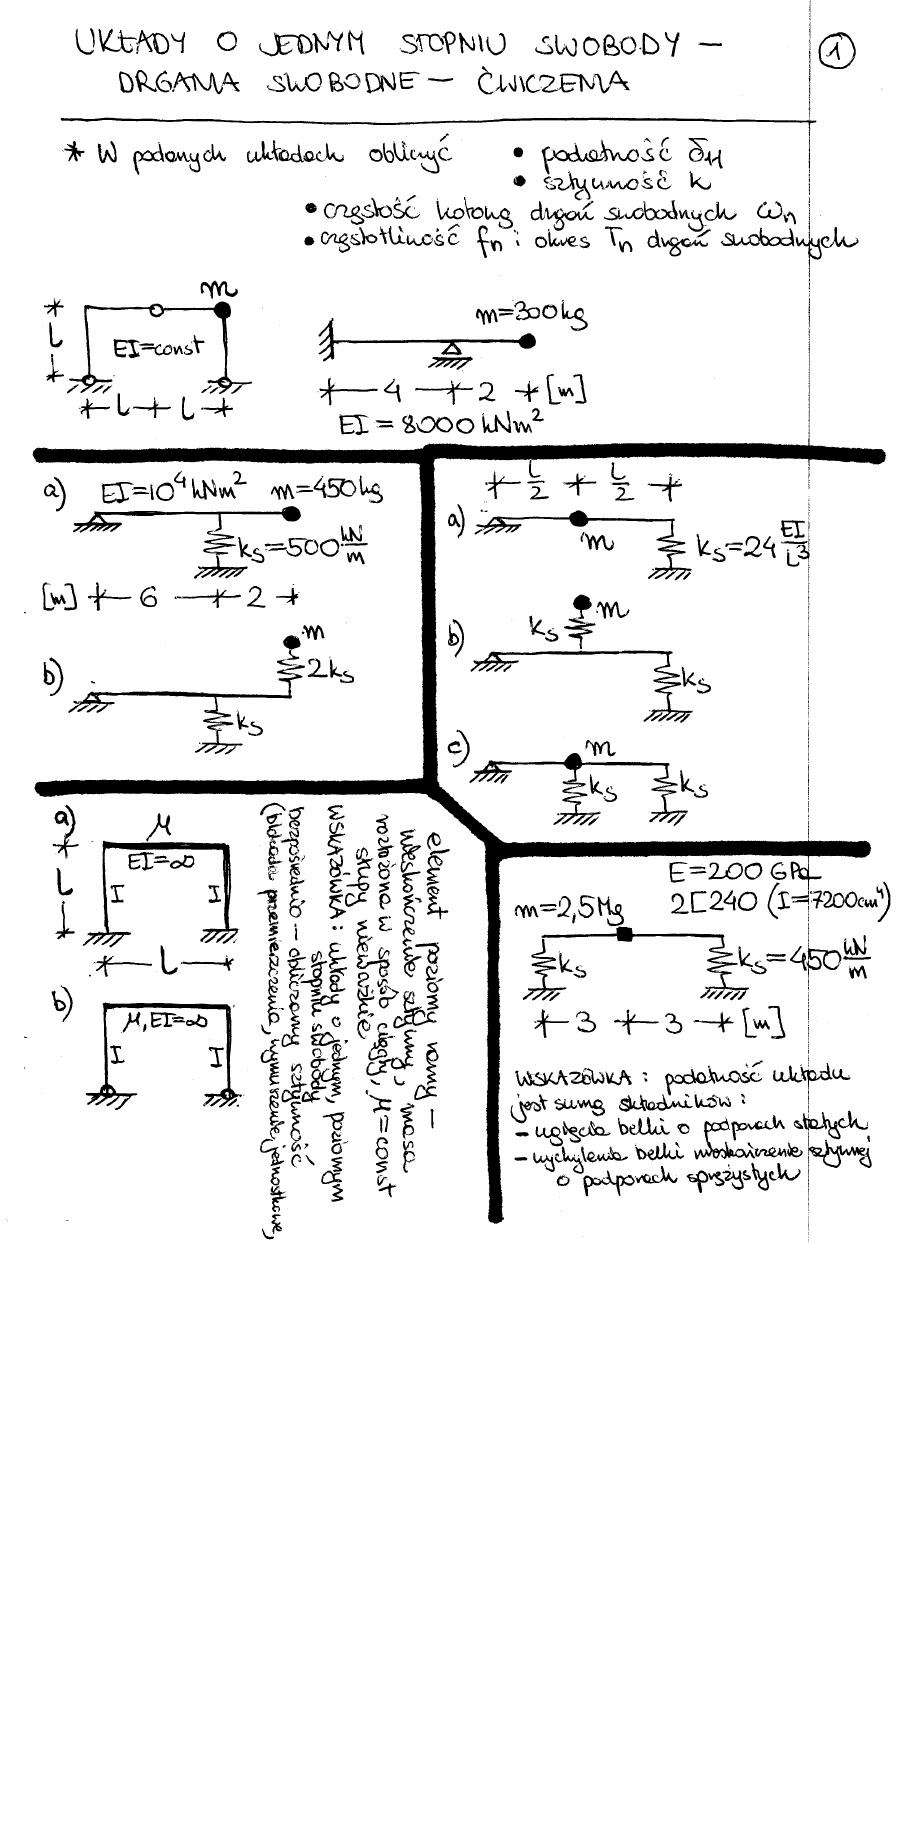 UKŁADY O JEDNYM STOPNIU SWOBODY –
DRGANIA SWOBODNE – ĆWICZENIA
1
* W podanych układach obliczyć
• podatność δ11
• sztywność k
• częstość kołową drgań swobodnych ωn
• częstotliwość fn i okres Tn drgań swobodnych
m
L
EI=const
L L
m=300kg
4 2 [m]
EI=8000kNm²
a) EI=10⁴kNm² m=450kg
ks=500 kN/m
[m] 6 2
b) m
2ks
ks
L/2 L/2
a)
m
ks=24 EI/L³
b) ks m
ks
c) m
ks ks
a) μ
EI=∞
L
I I
L
b)
μ, EI=∞
I I
element poziomy ramy –
nieskończenie sztywny, masa
rozłożona w sposób ciągły, μ=const
słupy nieważkie
WSKAZÓWKA: układy o jednym, poziomym
stopniu swobody
bezpośrednio – obliczamy sztywność
(blokada przemieszczenia, wymuszenie jednostkowe)
E=200 GPa
m=2,5Mg 2[240 (I=7200cm⁴)
ks ks=450 kN/m
3 3 [m]
WSKAZÓWKA: podatność układu
jest sumą składników:
– ugięcia belki o podporach stałych
– wychylenia belki nieskończenie sztywnej
o podporach sprężystych